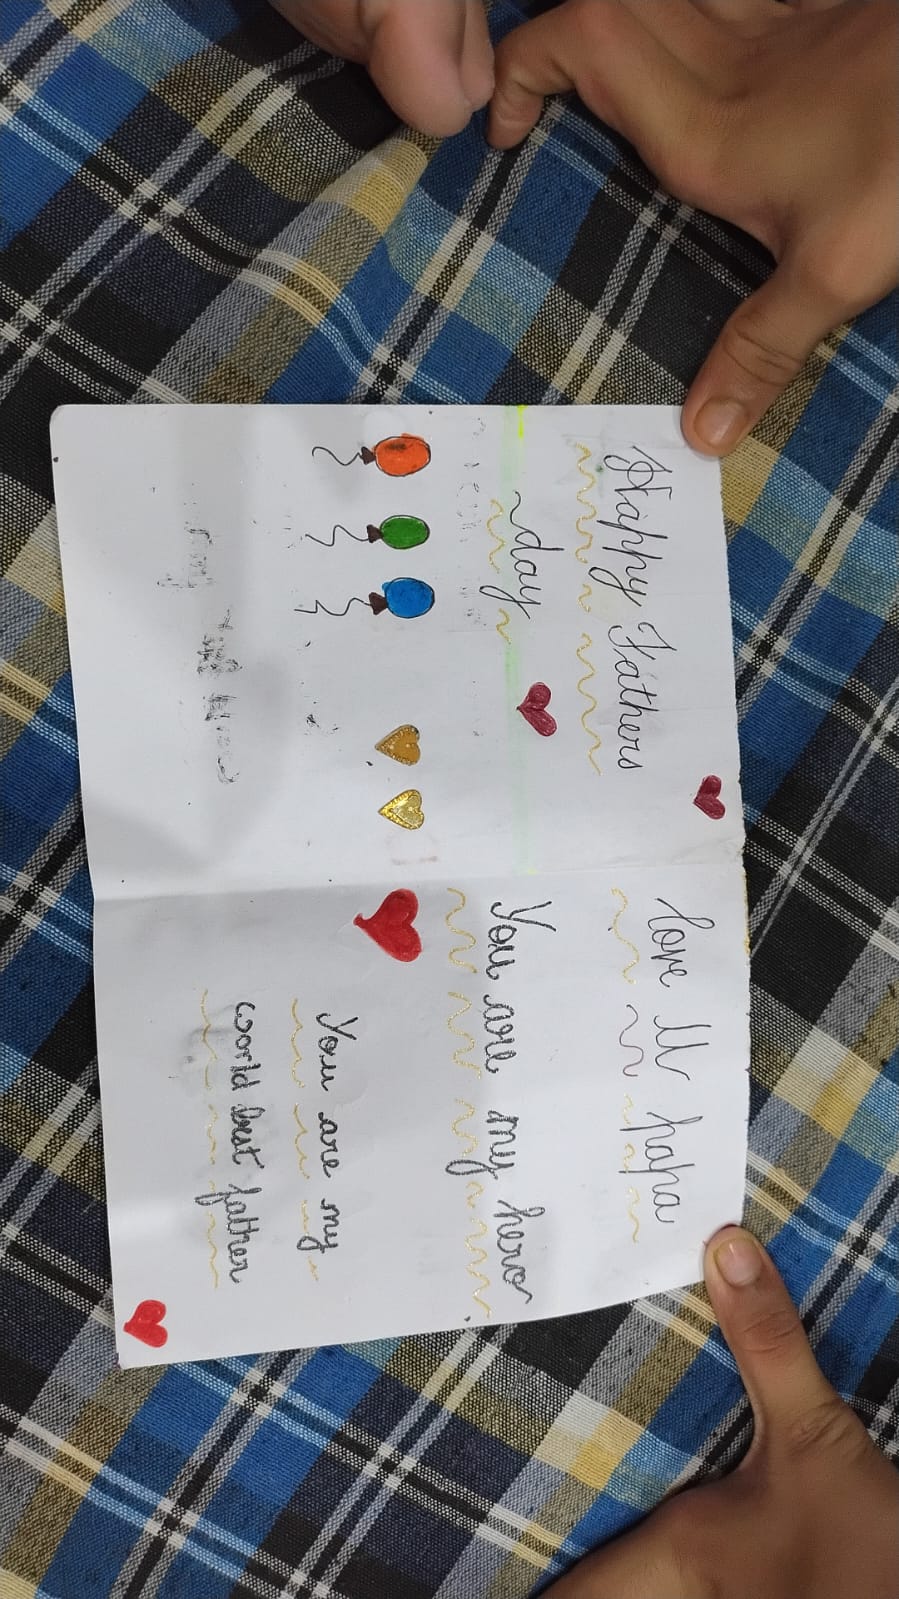 Happy Fathers
day
love U papa
You are my hero
You are my
world best father